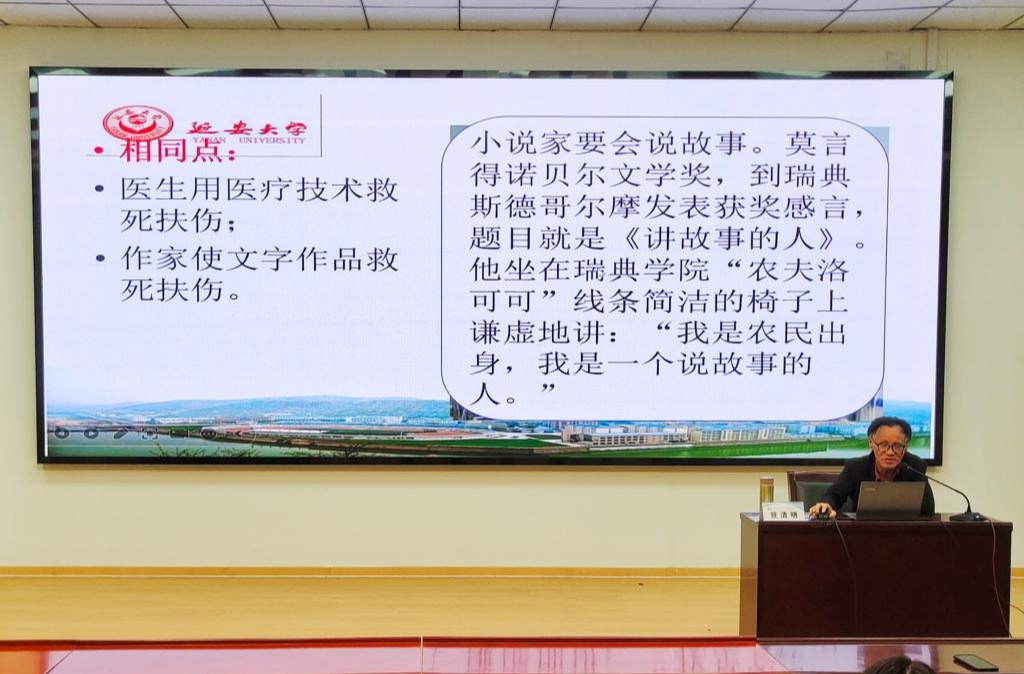 延安大学
YANAN UNIVERSITY
• 相同点：
• 医生用医疗技术救
死扶伤；
• 作家使文字作品救
死扶伤。
小说家要会说故事。莫言
得诺贝尔文学奖，到瑞典
斯德哥尔摩发表获奖感言，
题目就是《讲故事的人》。
他坐在瑞典学院“农夫洛
可可”线条简洁的椅子上
谦虚地讲：“我是农民出
身，我是一个说故事的
人。”
贺清明